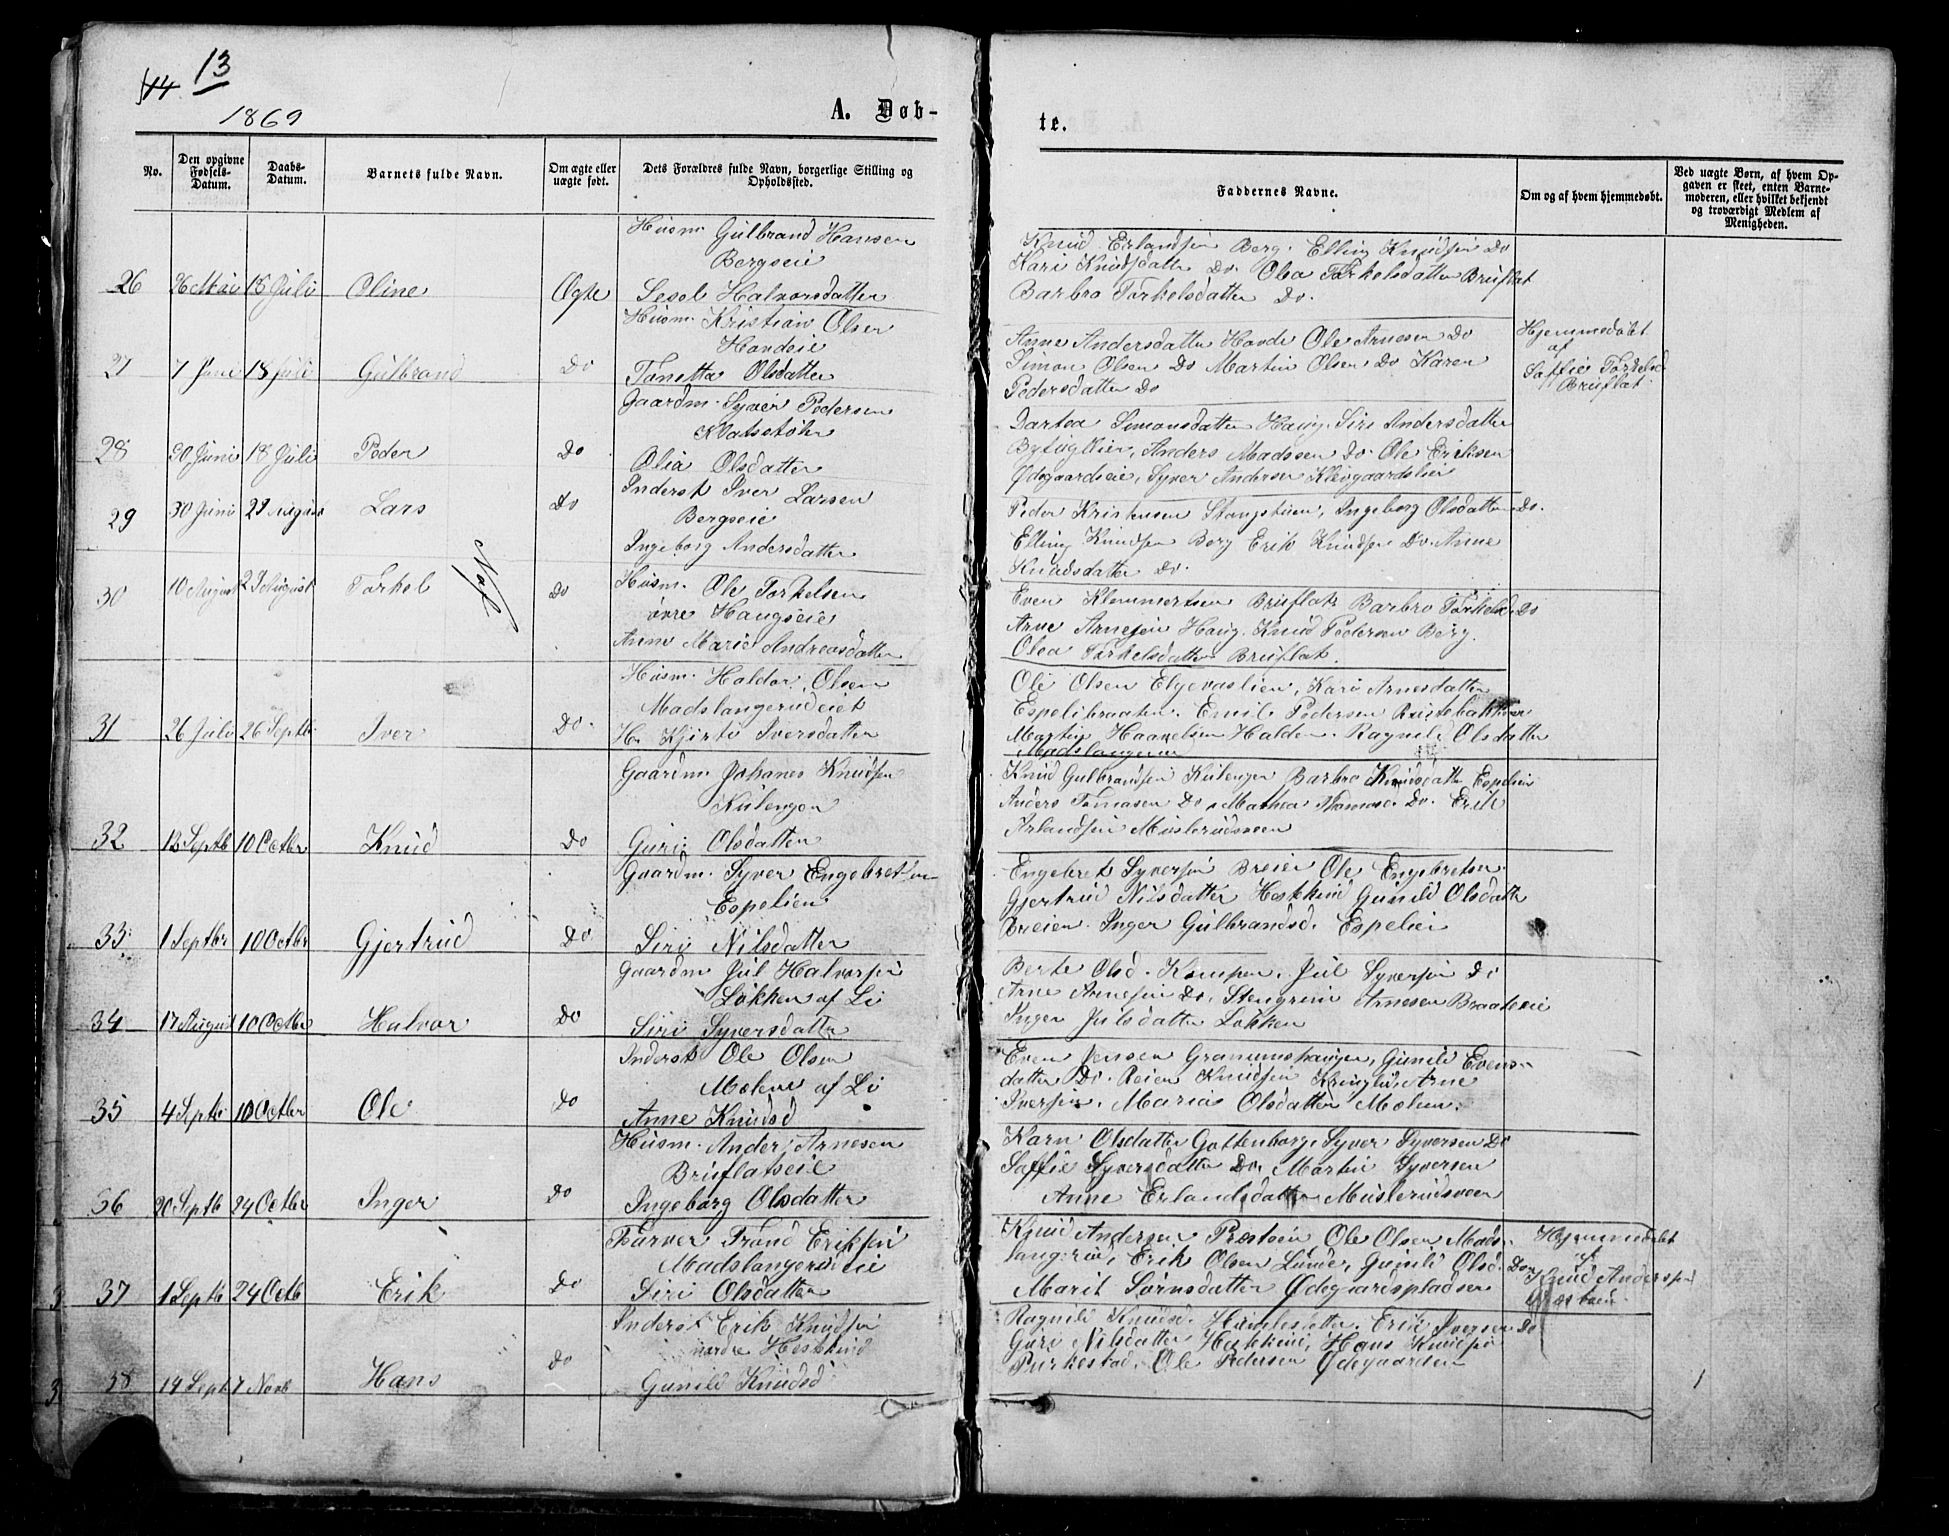 14. 13
1869
A. Døb-
te.
No.
Den opgivne Fødsels-Datum.
Daabs-Datum.
Barnets fulde Navn.
Om ægte eller uægte født.
Dets Forældres fulde Navn, borgerlige Stilling og Opholdssted.
Faddernes Navne.
Om og af hvem hjemmedøbt.
Ved uægte Børn, af hvem Op-
gaven er skeet, enten Barne-
moderen, eller hvilket bekjendt
og troværdigt Medlem af
Menigheden.
Husm. Gulbrand Hansen
Bergseie
26 26 Mai 18 Juli Oline Ægte Sesel Halvorsdatter
Knud Erlandsen Berg. Elling Knudsen Do
Kari Knudsdatter Do. Olea Torkelsdatter Bruflat
Barbro Torkelsdatter Do.
Husm. Kristian Olsen
Havdeie
27 7 Juni 18 Juli Gulbrand Do Tonetta Olsdatter
Anne Andersdatter Havde Ole Arnesen Do
Simon Olsen Do Martin Olsen Do Karen
Pedersdatter Do
Hjemmedøbt
af
Saffie Torkelsd
Bruflat
Gaardm. Syver Pedersen
28 30 Juni 18 Juli Peder Do Olia Olsdatter
Dartea Simonsdatter Haug. Siri Andersdatter
Anders Madssen Do. Ole Eriksen
Ødegaardseie, Syver Andersen Klevgaardslien
Inderst Iver Larsen
29 30 Juni 29 August Lars Do Bergseie
Ingeborg Andersdatter
Peder Kristensen Stangstuen, Ingeborg Olsdatter Do.
Elling Knudsen Berg Erik Knudsen Do. Anne
Knudsdatter Do.
30 10 August 29 August Torkel Do Husm. Ole Torkelsen
øvre Haugseie
Anne Marie Andreasdatter
Even Klemmetsen Bruflat Barbro Torkelsd Do
Arne Arnesen Haug. Knud Pedersen Berg.
Olea Torkelsdatter Bruflat.
Husm. Haldor Olsen
Madslangerudeiet
31 26 Juli 26 Septb Iver Do. H. Kjirsti Iversdatter
Ole Olsen Elgevaslien, Kari Arnesdatter
Espelibraaten. Emil Pedersen
Martin Haavelsen Halden. Ragnild Olsdatter
Madslangerud
Gaardm. Johanes Knudsen
Kulengen
32 13 Septb 10 Octbr Knud Do Guri Olsdatter
Knud Gulbrandsen Kulengen Barbro Knudsdatt Espelien
Anders Tomasen Do Mathea Thomasd. Do. Erik
Arlandsen Muslerudsveen
Gaardm. Syver Engebretsen
Espelien
33 1 Septbr 10 Octbr Gjertrud Do Siri Nilsdatter
Engebret Syversen Breien Ole Engebretsen
Gjertrud Nilsdatter Heskkind Gunild Olsdatter
Breien. Inger Gulbrandsd. Espelien
Gaardm Jul Halvorsen
Løkken af Li
34 17 August 10 Octbr Halvor Do Siri Syversdatter
Berte Olsd. Kampen. Jul Syversen Do
Arne Arnesen Do. Stengrim Arnesen Braateeie
Inger Julsdatter Løkken
Inderst Ole Olsen
Mokne af Li
35 4 Septb 10 Octbr Ole Do Anne Knudsd
Even Jensen Granumshaugen, Gunild Evens-
datter Do. Reier Knudsen Kringlie, Arne
Iversen. Maria Olsdatter Moken.
Husm. Anders Arnesen
Bruflatseie
36 20 Septb 24 Octbr Inger Do Ingeborg Olsdatter
Karn Olsdatter Gottenborg, Syver Syversen Do
Saffie Syversdatter Do. Martin Syversen
Anne Erlandsdatter Muslerudsveen
Farver Trond Eriksen
Madslangerudeie
37 1 Septb 24 Octb Erik Do Siri Olsdatter
Knud Andersen Præstøien Ole Olsen Mads-
langerud, Erik Olsen Lunde, Gunild Olsd. Do
Marit Sørnsdatter Ødegaardspladsen
Hjemmedøbt
af
Knud Andersen
Præstøien
Inderst Erik Knudsen
nordre Heskkind
38 14 Sept 7 Novb Hans Do Gunild Knudsd
Ragnild Knudsd. Erik Iversen Do
Guri Nilsdatter Heskkind, Hans Knudsen
Purkestad. Ole Pedersen Ødegaarden